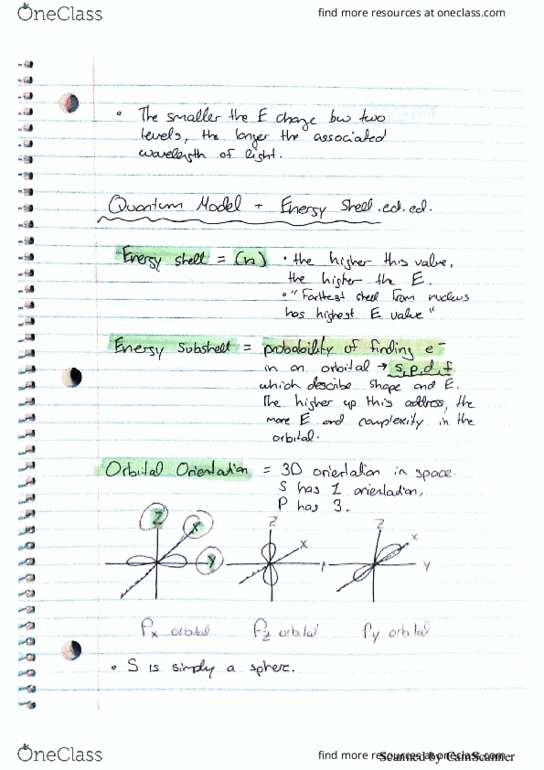 OneClass
find more resources at oneclass.com
• The smaller the E change bw two
levels, the longer the associated
wavelength of light.
Quantum Model + Energy Shell .cd. ed.
Energy shell = (n) • the higher this value,
the higher the E.
• "Farthest shell from nucleus
has highest E value"
Energy Subshell = probability of finding e-
in an orbital → s,p,d,f
which describe shape and E.
The higher up this address, the
more E and complexity in the
orbital.
Orbital Orientation = 3D orientation in space.
S has 1 orientation,
P has 3.
Z X Y
Z X Y
Z X Y
Px orbital Pz orbital Py orbital
• S is simply a sphere.
OneClass
find more resources at oneclass.com
Scanned by CamScanner